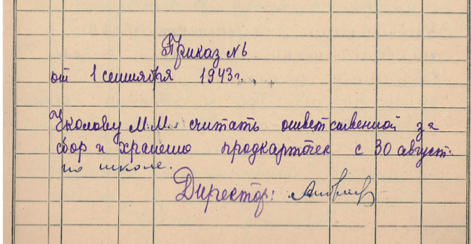 Приказ №
от 1 сентября 1943г.
М.М. считать ответственной за
сбор и хранение продкарточек с 30 август.
по школе.
Директор: